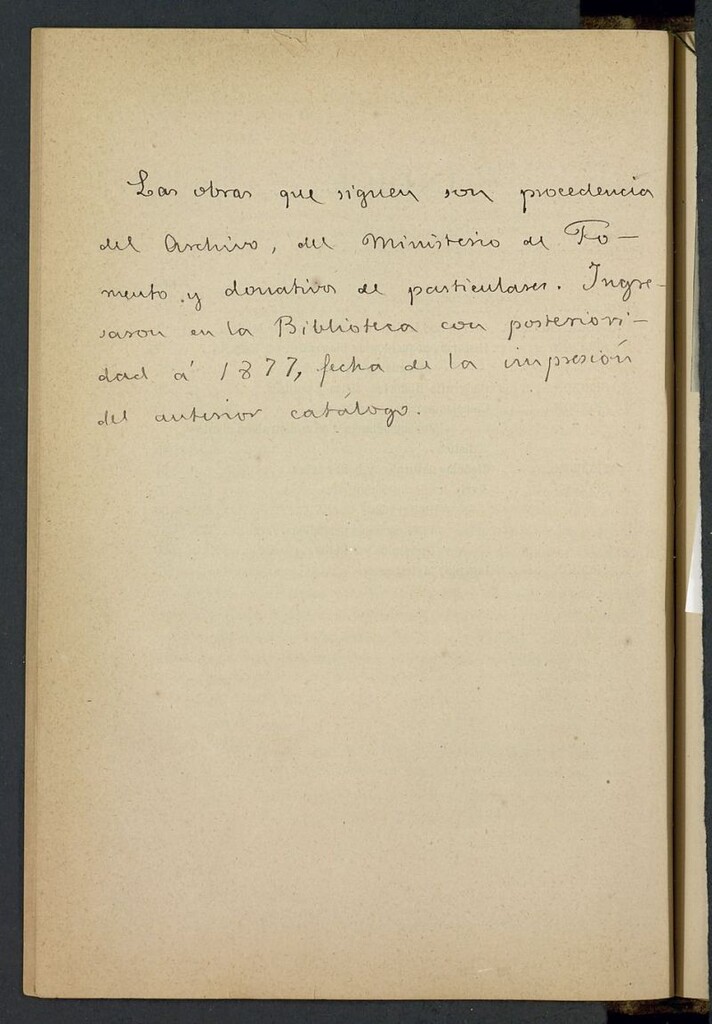 Las obras que siguen son procedencia
del Archivo, del Ministerio de Fo-
mento y donativos de particulares. Ingre-
saron en la Biblioteca con posteriori-
dad á 1877, fecha de la impresión
del anterior catálogo.